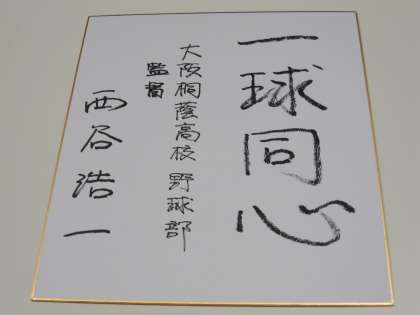 一球同心
大阪桐蔭高校野球部
監督
西谷浩一